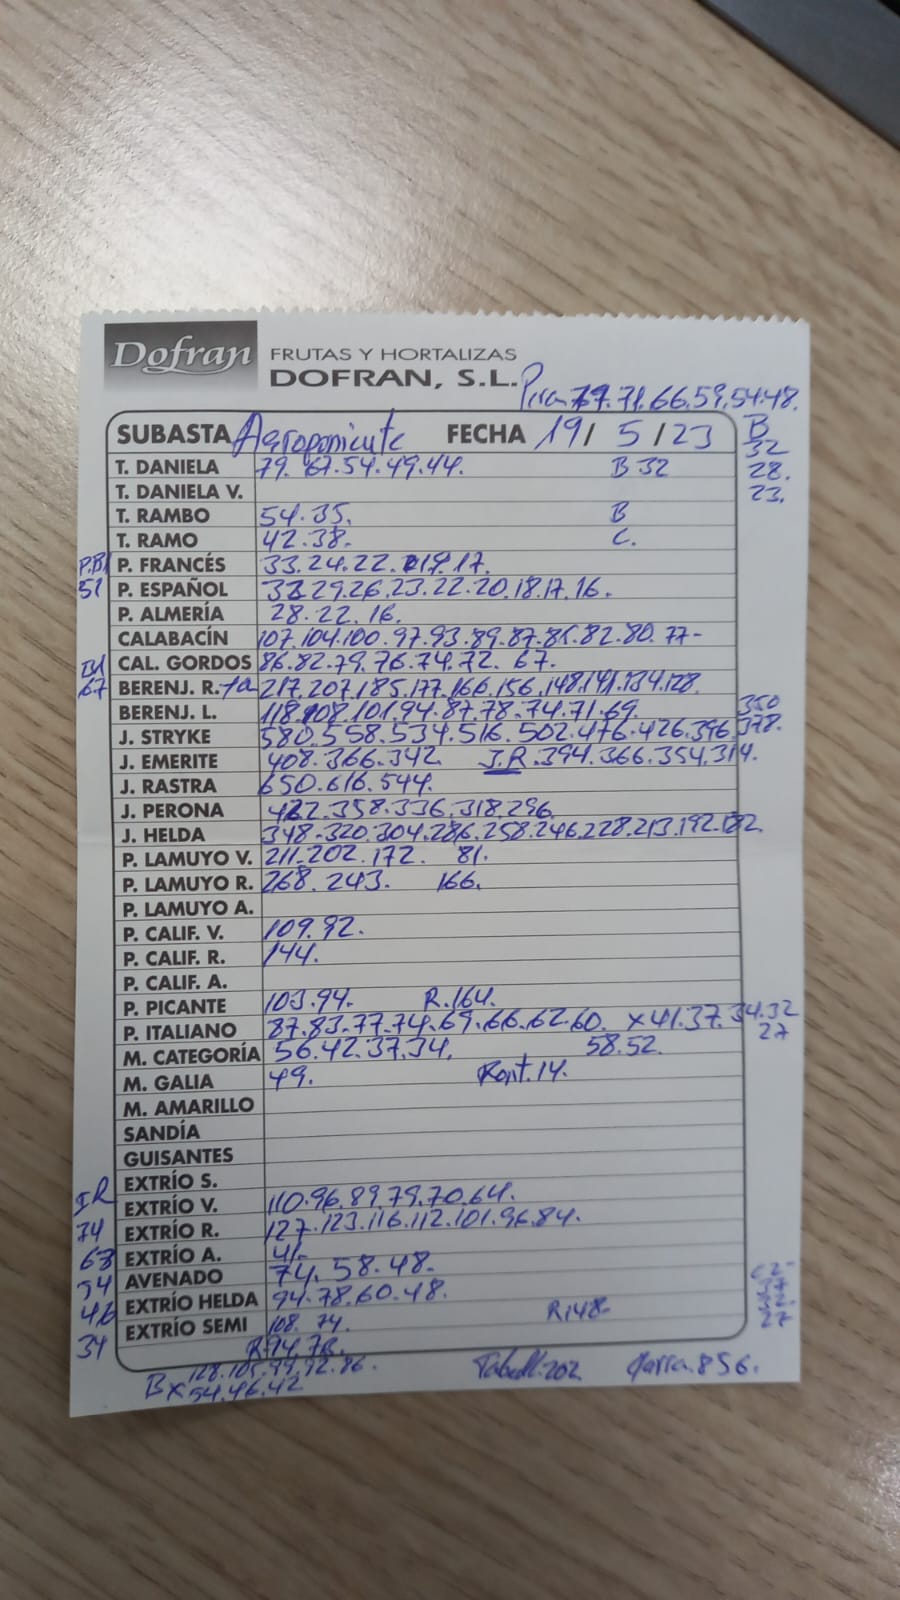 Dofran FRUTAS Y HORTALIZAS
DOFRAN, S.L.
79.71.66.59.54.48.
SUBASTA Agroponiente FECHA 19/ 5 /23 B
32
T. DANIELA 79. 67.54.49.44. B 32 28.
T. DANIELA V. 23.
T. RAMBO 54.35. B
T. RAMO 42.38. C.
P.B1 P. FRANCÉS 33.24.22. 19.17.
51 P. ESPAÑOL 32.29.26.23.22.20.18.17.16.
P. ALMERÍA 28.22.16.
CALABACÍN 107.104.100.97.93.89.87.85.82.80.77-
B1 CAL. GORDOS 86.82.79.76.74.72. 67.
67 BERENJ. R. 1a 217.207.185.177.166.156.148.141.134.128.
BERENJ. L. 118.108.101.94.87.78.74.71.69. 350
J. STRYKE 580.558.534.516.502.476.426.396.378.
J. EMERITE 408.366.342. J.R.394.366.354.314.
J. RASTRA 650.616.544.
J. PERONA 422.358.336.318.296.
J. HELDA 348-320.304.286.258.246.228.213.192.182.
P. LAMUYO V. 211.202.172. 81.
P. LAMUYO R. 268.243. 166.
P. LAMUYO A.
P. CALIF. V. 109.92.
P. CALIF. R. 144.
P. CALIF. A.
P. PICANTE 103.94. R.164.
P. ITALIANO 87.83.77.74.69.66.62.60. x41.37.34.32
27
M. CATEGORÍA 56.42.37.34. 58.52.
M. GALIA 49. 14.
M. AMARILLO
SANDÍA
GUISANTES
EXTRÍO S.
IR EXTRÍO V. 110.96.89.79.70.64.
74 EXTRÍO R. 127.123.116.112.101.96.84.
63 EXTRÍO A. 41-
54 AVENADO 74.58.48.
46 EXTRÍO HELDA 94.78.60.48.
34 EXTRÍO SEMI 108.74. R.148- 27
R.94.78.
B 128.105.99.92.86.
x54.46.42 202 Garra.856.